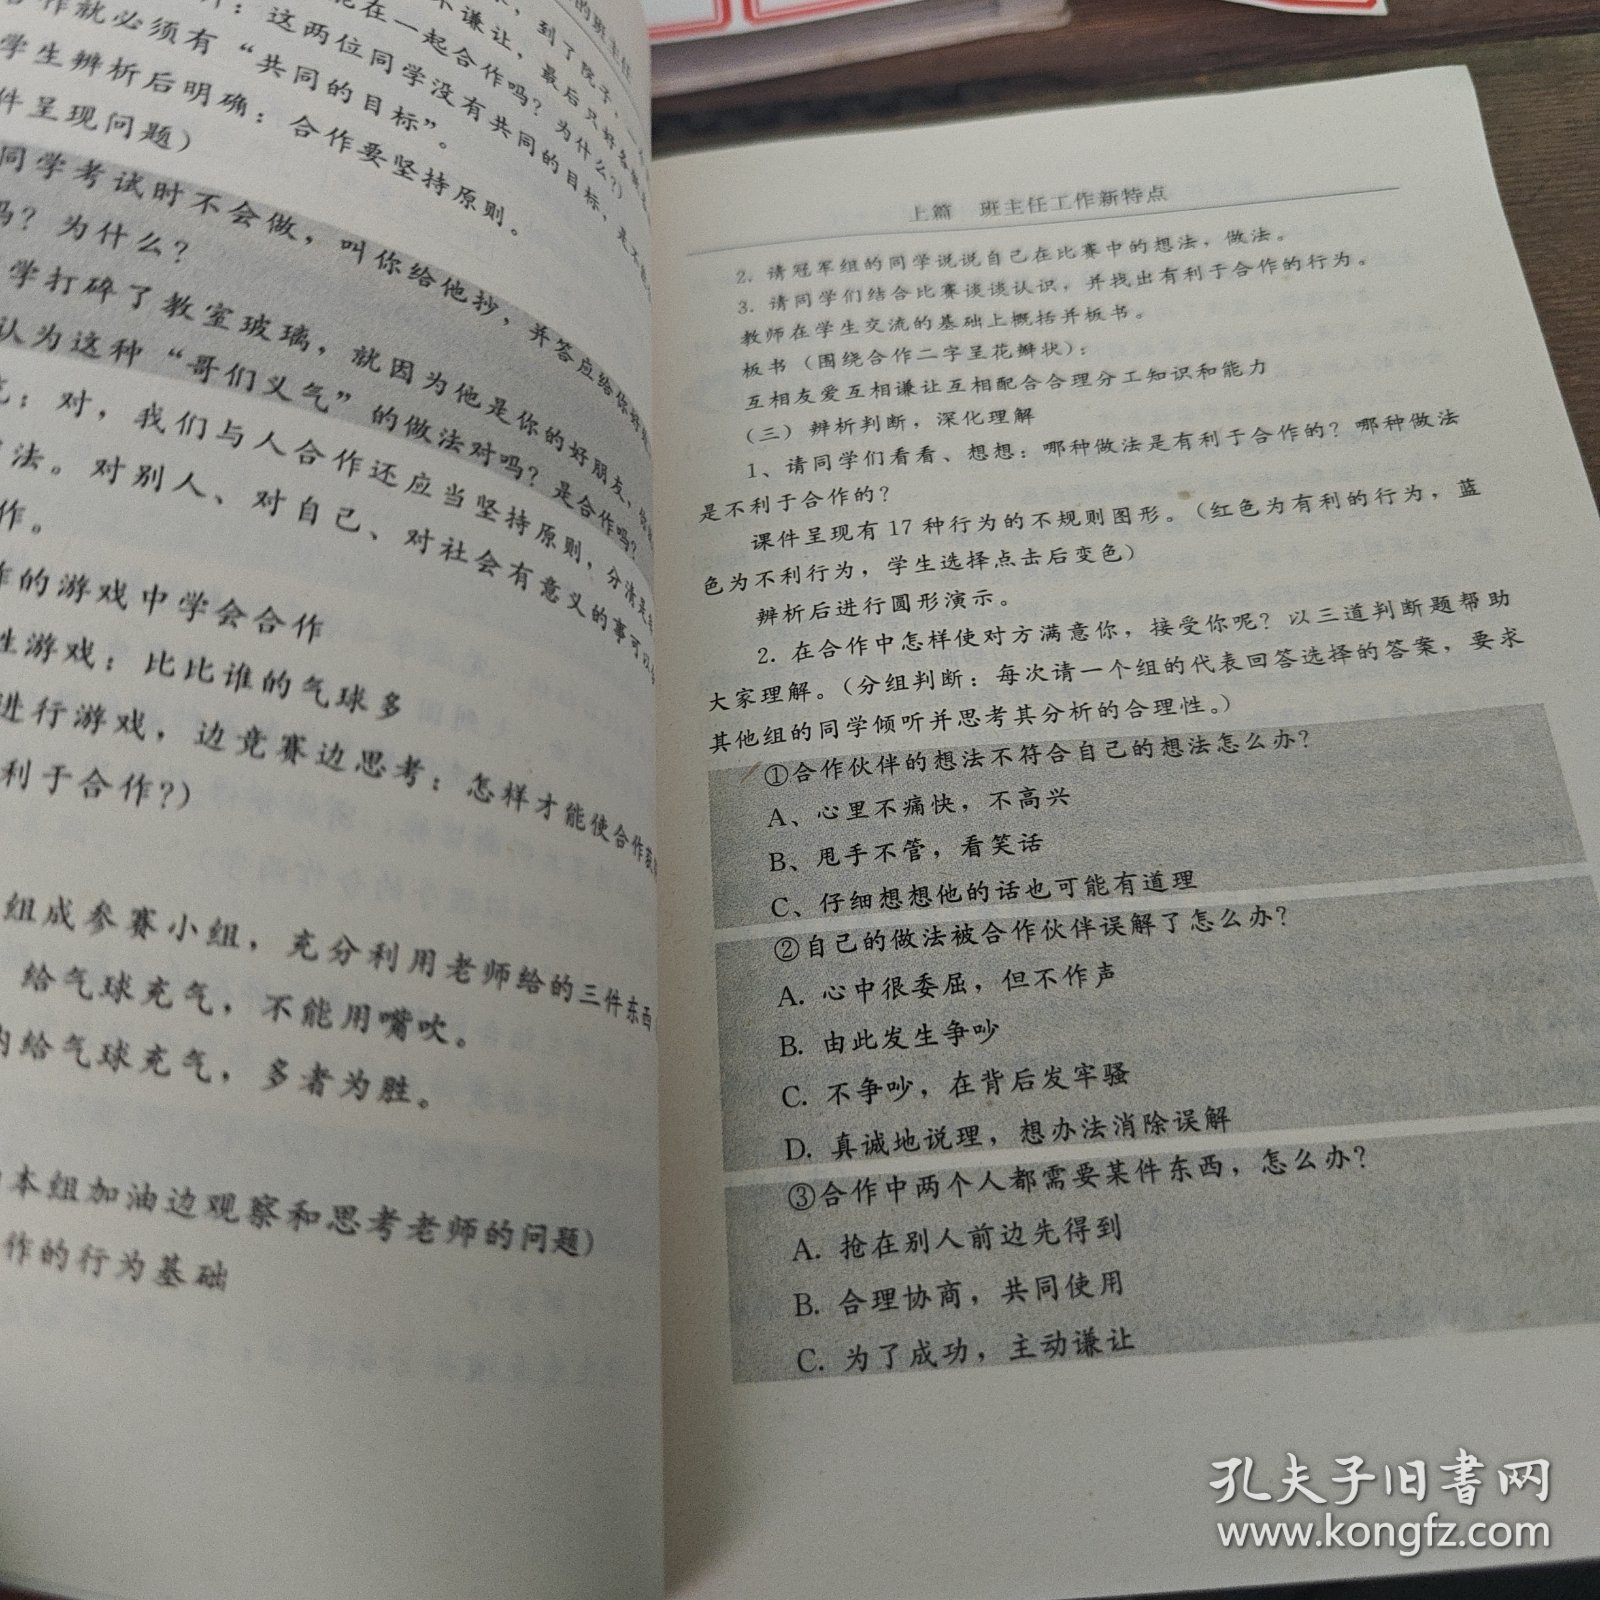 的班主任
到了院子，
不谦让，最后只好
能在一起合作吗？为什么？）
：这两位同学没有共同的目标，是
合作就必须有“共同的目标”。
学生辨析后明确：合作要坚持原则。
件呈现问题）
同学考试时不会做，叫你给他抄，并答应给你
吗？为什么？
学打碎了教室玻璃，就因为他是你的好朋友，
认为这种“哥们义气”的做法对吗？是合作吗？
：对，我们与人合作还应当坚持原则，分清是
法。对别人、对自己、对社会有意义的事可以
作。
作的游戏中学会合作
性游戏：比比谁的气球多
进行游戏，边竞赛边思考：怎样才能使合作
利于合作？）
组成参赛小组，充分利用老师给的三件东西
给气球充气，不能用嘴吹。
内给气球充气，多者为胜。
本组加油边观察和思考老师的问题）
作的行为基础
上篇 班主任工作新特点
2. 请冠军组的同学说说自己在比赛中的想法，做法。
3. 请同学们结合比赛谈谈认识，并找出有利于合作的行为。
教师在学生交流的基础上概括并板书。
板书（围绕合作二字呈花瓣状）：
互相友爱互相谦让互相配合合理分工知识和能力
（三）辨析判断，深化理解
1、请同学们看看、想想：哪种做法是有利于合作的？哪种做法
是不利于合作的？
课件呈现有 17 种行为的不规则图形。（红色为有利的行为，蓝
色为不利行为，学生选择点击后变色）
辨析后进行圆形演示。
2. 在合作中怎样使对方满意你，接受你呢？以三道判断题帮助
大家理解。（分组判断：每次请一个组的代表回答选择的答案，要求
其他组的同学倾听并思考其分析的合理性。）
①合作伙伴的想法不符合自己的想法怎么办？
A、心里不痛快，不高兴
B、甩手不管，看笑话
C、仔细想想他的话也可能有道理
②自己的做法被合作伙伴误解了怎么办？
A. 心中很委屈，但不作声
B. 由此发生争吵
C. 不争吵，在背后发牢骚
D. 真诚地说理，想办法消除误解
③合作中两个人都需要某件东西，怎么办？
A. 抢在别人前边先得到
B. 合理协商，共同使用
C. 为了成功，主动谦让
孔夫子旧书网
www.kongfz.com